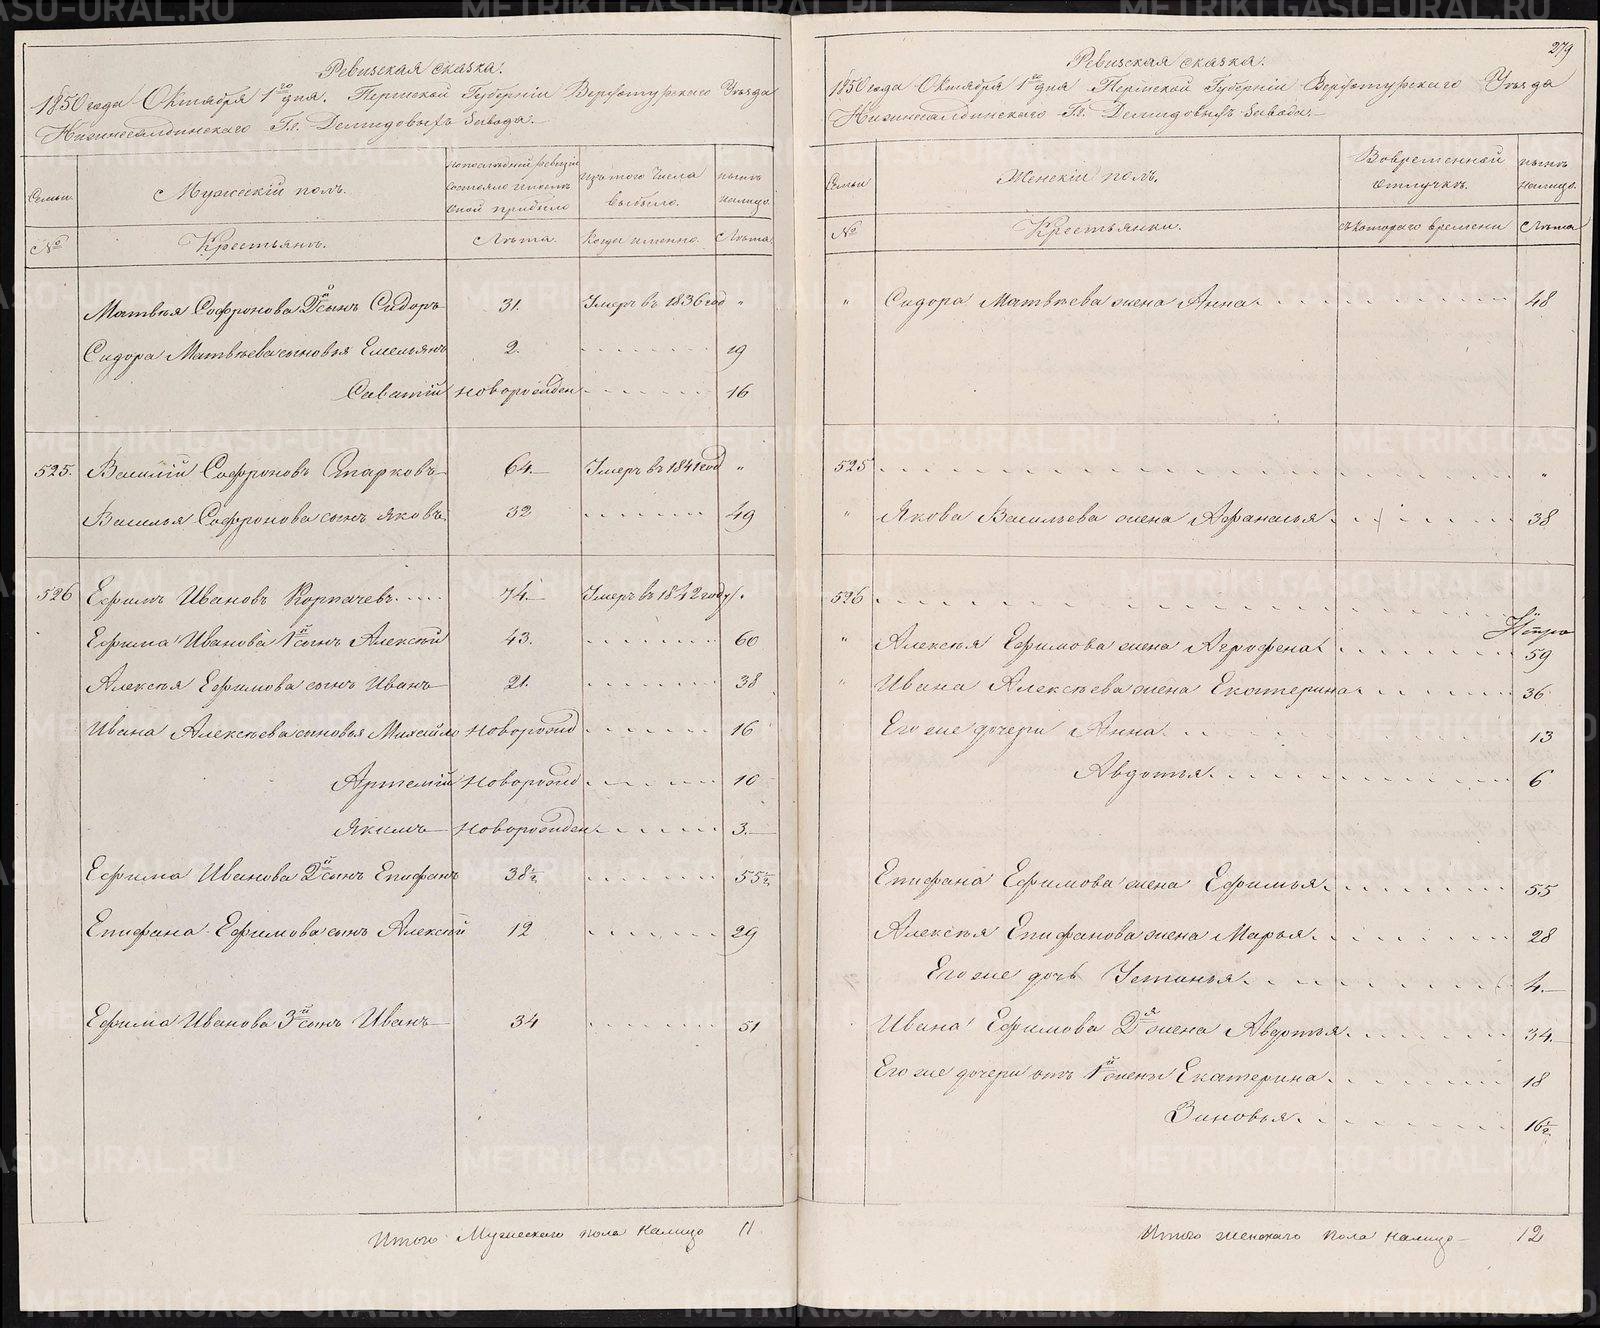 Ревизская сказка.
1850 года Октября 1го дня. Пермской Губерніи Верхотурскаго Уѣзда
Нижнесалдинскаго Гг. Демидовыхъ Завода.
Семьи. Мужескій полъ. По последней ревизіи состояло и после оной прибыло Изъ того числа выбыло. Нынѣ на лицо.
№ Крестьянъ. Лѣта. Когда именно. Лѣта.
Матвѣя Софронова 2й сынъ Сидоръ 31. Умеръ въ 1836 год "
Сидора Матвѣева сыновья Емельянъ 2. 19
Саватій новорожден 16
525. Василій Софроновъ 64. Умеръ въ 1841 год "
Василья Софронова сынъ Яковъ 32 49
526 Ефимъ Ивановъ Корпачевъ 74. Умеръ въ 1842 году. "
Ефима Иванова 1й сынъ Алексѣй 43. 60
Алексѣя Ефимова сынъ Иванъ 21. 38
Ивана Алексѣева сыновья Михайло новорожд 16
Артемій новорожд 10
Якимъ новорожден 3.
Ефима Иванова 2й сынъ Епифанъ 38½ 55½
Епифана Ефимова сынъ Алексѣй 12 29
Ефима Иванова 3й сынъ Иванъ 34 51
Итого Мужескаго пола налицо 11.
279
Ревизская сказка.
1850 года Октября 1го дня Пермской Губерніи Верхотурскаго Уѣзда
Нижнесалдинскаго Гг. Демидовыхъ Завода.
Семьи Женскій полъ. Во временной отлучкѣ. Нынѣ налицо.
№ Крестьянки. Съ котораго времени Лѣта
" Сидора Матвѣева жена Анна 48
525 "
" Якова Васильева жена Афанасья 38
526
" Алексѣя Ефимова жена Агрофена 59
" Ивана Алексѣева жена Екатерина 36
Его же дочери Анна 13
Авдотья 6
Епифана Ефимова жена Ефимья 55
Алексѣя Епифанова жена Марья 28
Его же дочь Устинья 4.
Ивана Ефимова 2я жена Авдотья 34.
Его же дочери отъ 1й жены Екатерина 18
Зиновья 16½
Итого женскаго пола налицо 12
METRIKI.GASO-URAL.RU